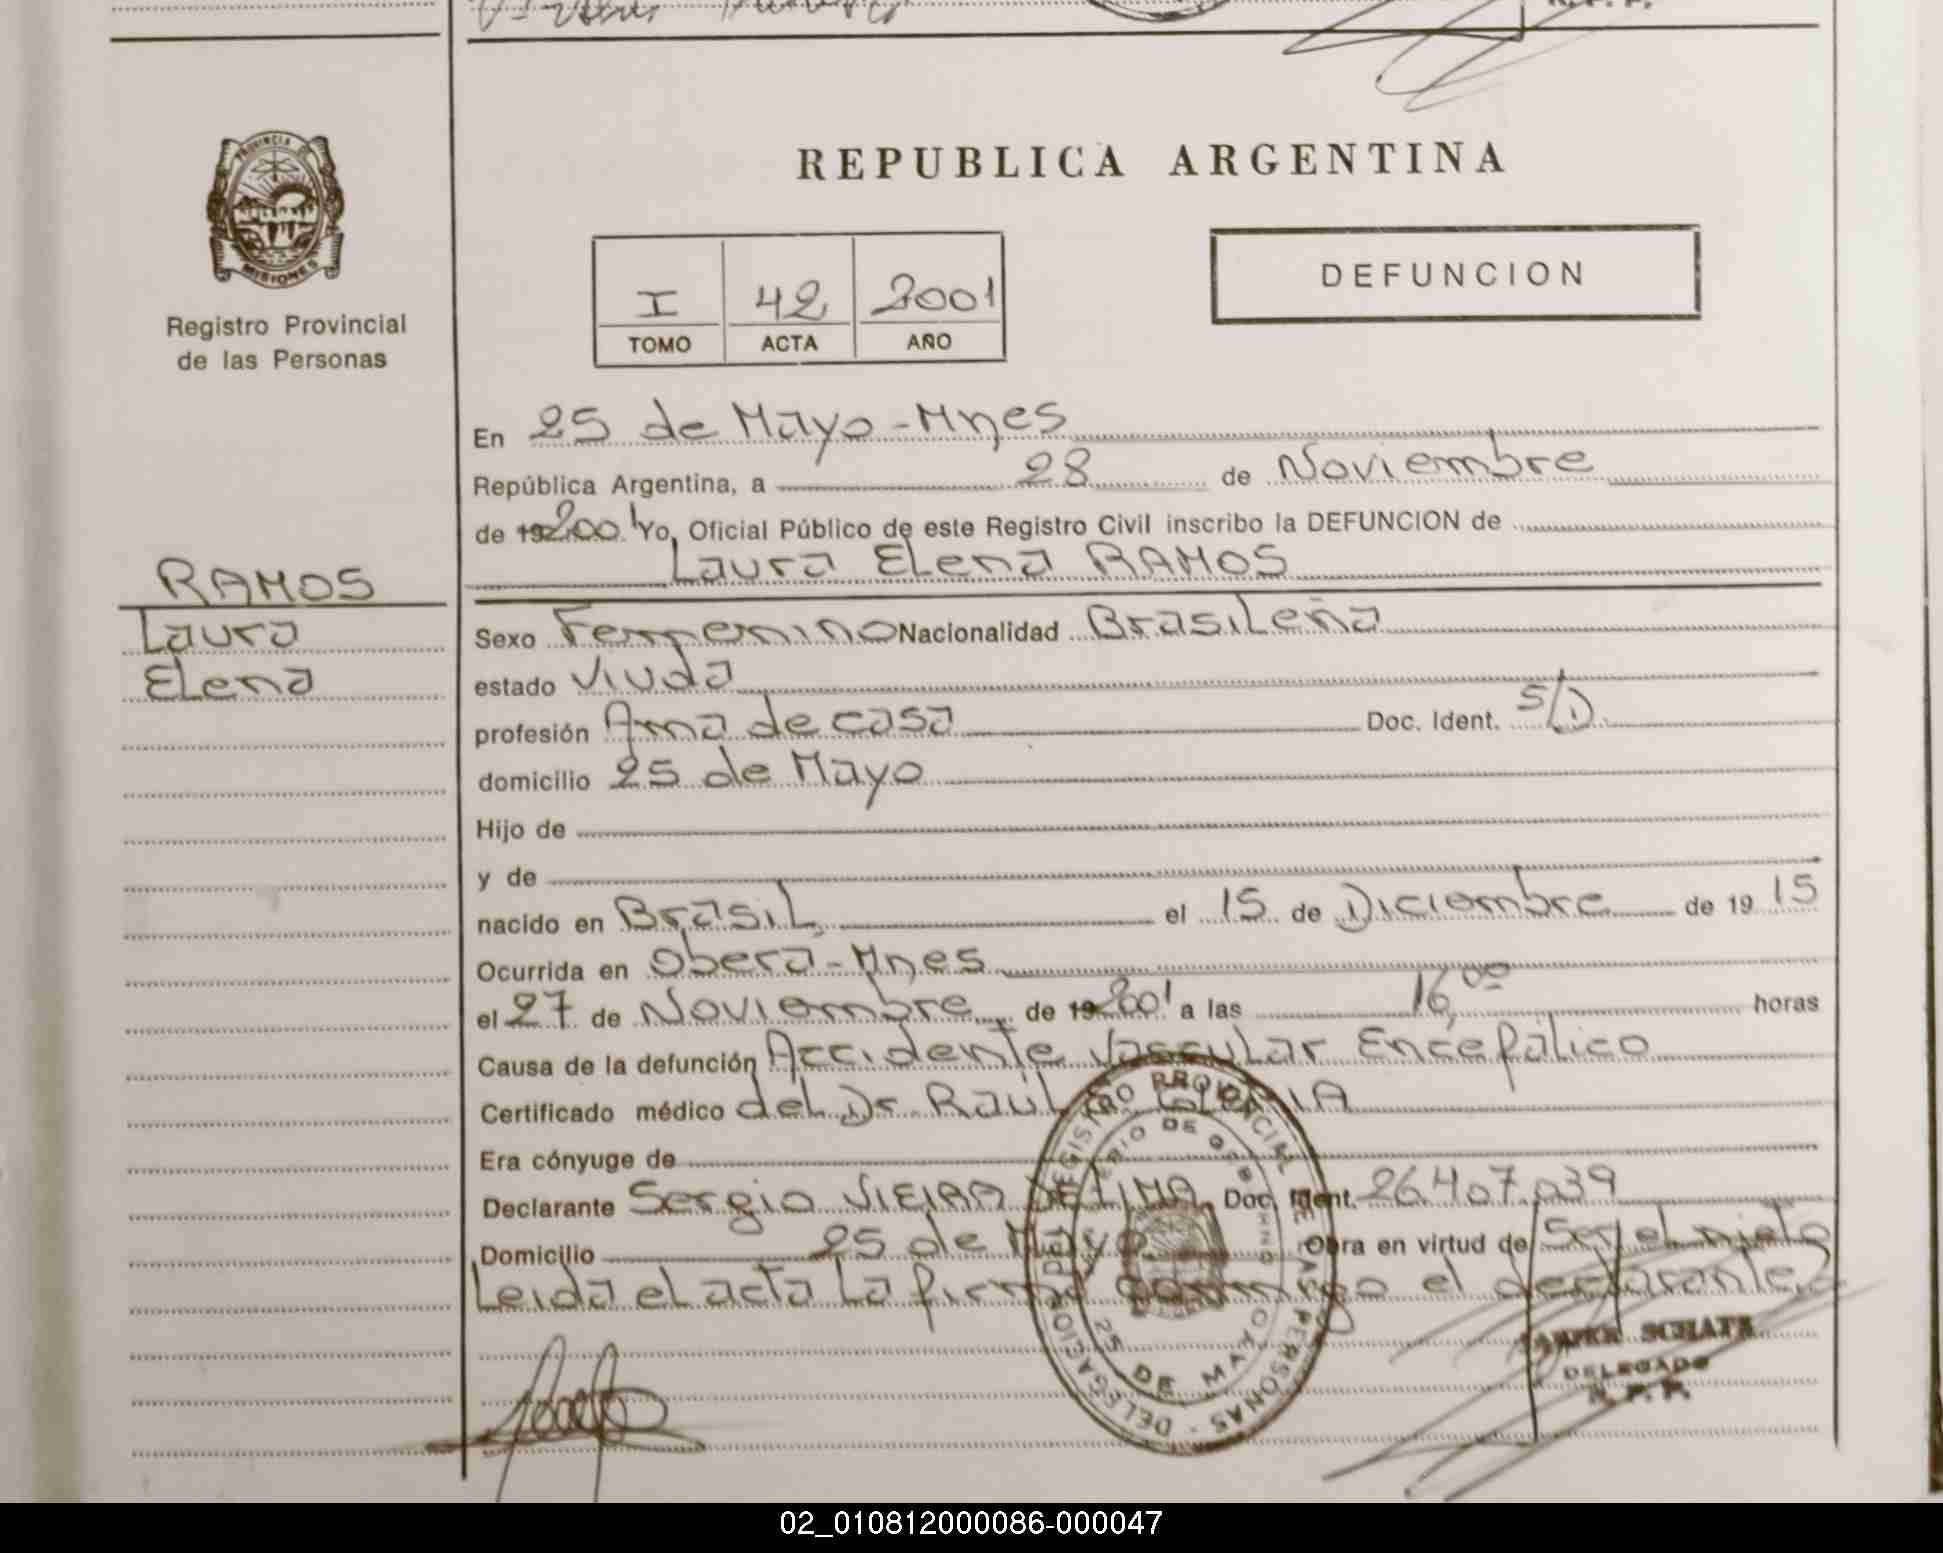 REPUBLICA ARGENTINA
PROVINCIA DE
MISIONES
Registro Provincial
de las Personas
I 42 2001
TOMO ACTA AÑO
DEFUNCION
En 25 de Mayo-Mnes
República Argentina, a 28 de Noviembre
de 19 2001 Yo, Oficial Público de este Registro Civil inscribo la DEFUNCION de
Laura Elena RAMOS
RAMOS
Laura
Elena
Sexo Femenino Nacionalidad Brasileña
estado Viuda
profesión Ama de casa Doc. Ident. S/D
domicilio 25 de Mayo
Hijo de
y de
nacido en Brasil el 15 de Diciembre de 19 15
Ocurrida en Oberá-Mnes
el 27 de Noviembre de 19 2001 a las 16,00 horas
Causa de la defunción Accidente Vascular Encefálico
Certificado médico del Dr Raúl
Era cónyuge de
Declarante Sergio VIEIRA DE LIMA Doc. Ident. 26.407.039
Domicilio 25 de Mayo Obra en virtud de Ser el nieto
Leida el acta la firma conmigo el declarante
REGISTRO PROVINCIAL DE LAS PERSONAS - DELEGACION
25 DE MAYO
SCHATZ
DELEGADO
R. P. P.
02_010812000086-000047